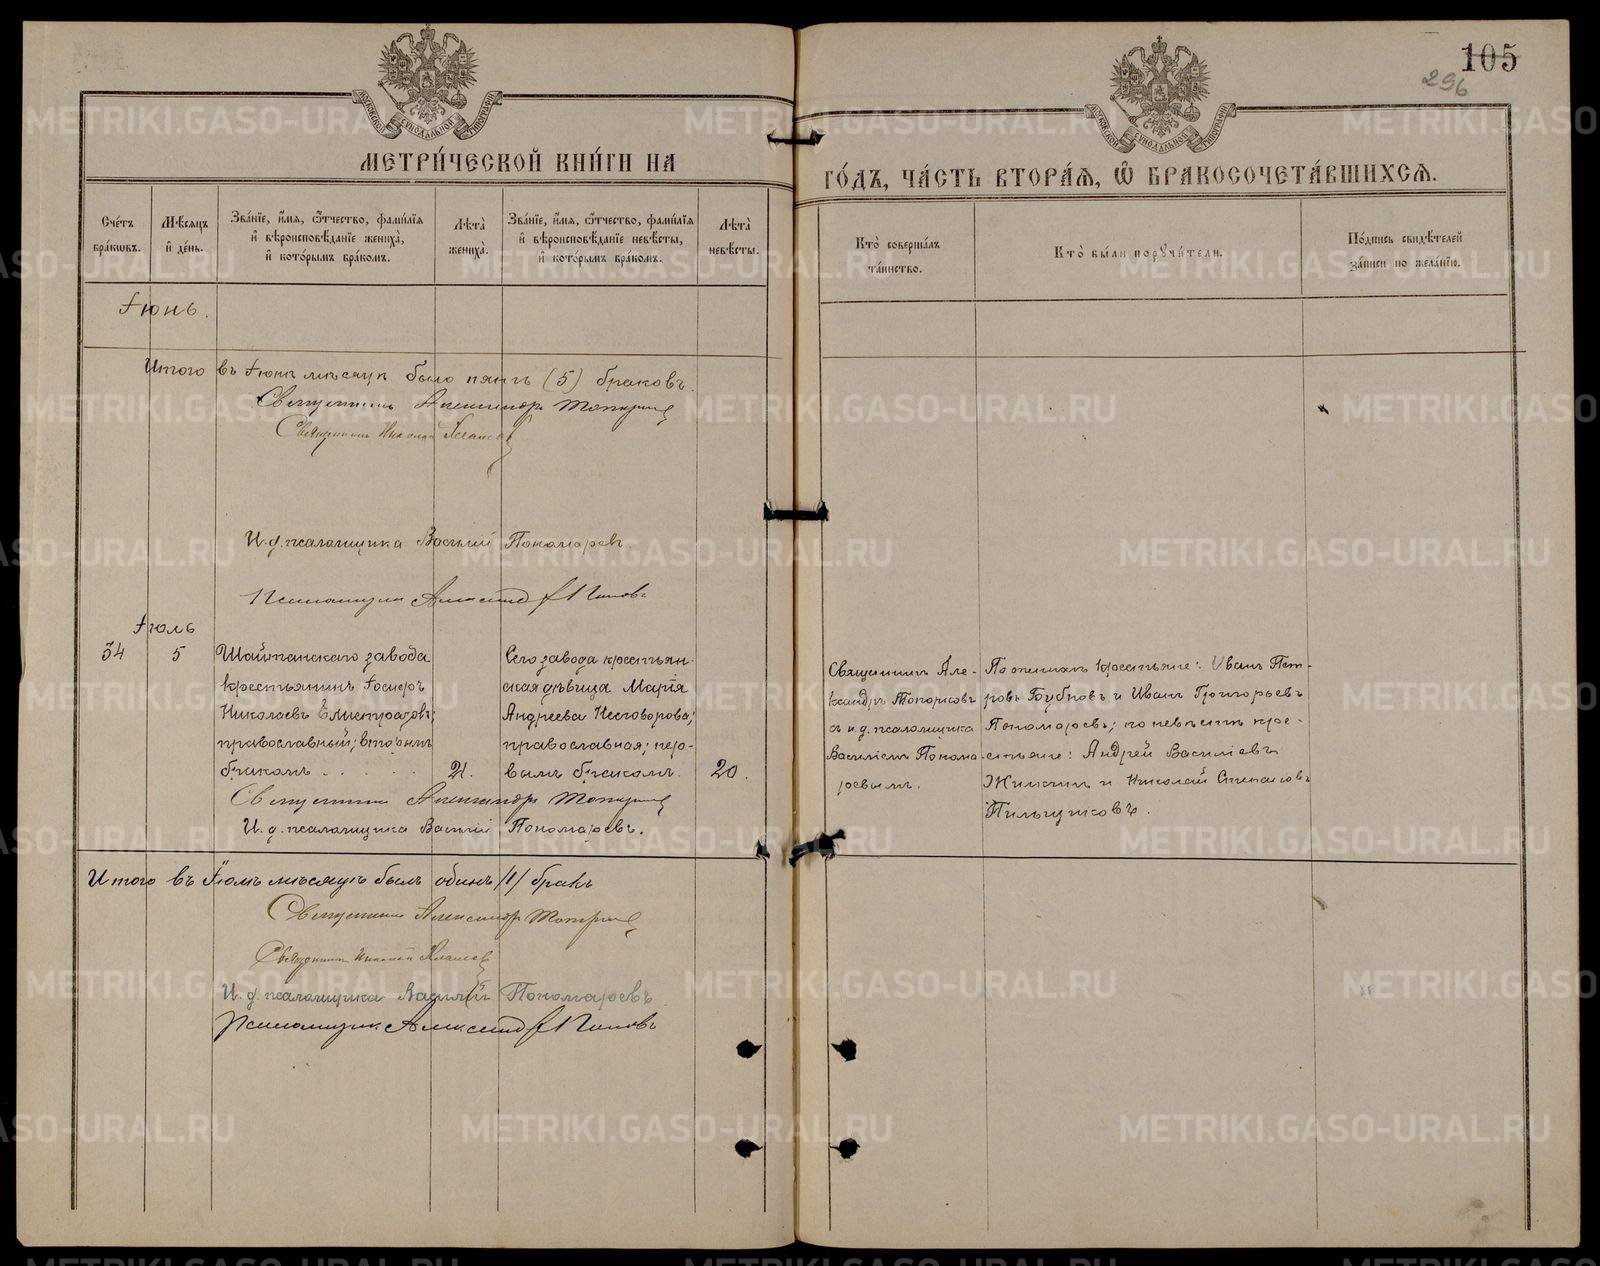 105
296
МОСКОВСКОЙ СѴНОДАЛЬНОЙ ТИПОГРАФІИ
МЕТРИ́ЧЕСКОЙ КНИ́ГИ НА
ГО́ДЪ, ЧА́СТЬ ВТОРА́Я, Ѡ҆ БРАКОСОЧЕТА́ВШИХСЯ.
Сче́тъ бра́кѡвъ.
Мѣ́сяцъ и҆ де́нь.
Зва́нїе, и҆́мя, ѻ҆́тчество, фами́лїя
и҆ вѣроисповѣ́данїе жениха̀,
и҆ кото́рымъ бра́комъ.
Лѣ́та̀ жениха̀.
Зва́нїе, и҆́мя, ѻ҆́тчество, фами́лїя
и҆ вѣроисповѣ́данїе невѣ́сты,
и҆ кото́рымъ бра́комъ.
Лѣ́та̀ невѣ́сты.
Кто̀ соверша́лъ
та́инство.
Кто̀ бы́ли порꙋчи́тели.
По́дпись свидѣ́телей
за́писи по жела́нїю.
Іюнь.
Итого въ Іюнѣ мѣсяцѣ было пять (5) браковъ.
Священникъ Александръ Топорковъ
Священникъ Николай
И. д. псаломщика Василій Пономаревъ
Псаломщикъ Александръ Поповъ
Іюль
34 5
Шайтанскаго завода
крестьянинъ
Николаевъ
православный; вторымъ
бракомъ
21.
Сего завода крестьян-
ская дѣвица Марія
Андреева Несговорова;
православная; пер-
вымъ бракомъ.
20.
Священникъ Але-
ксандръ Топорковъ
съ и. д. псаломщика
Василіемъ Понома-
ревымъ.
По женихѣ крестьяне: Иванъ Пет-
ровъ Бубновъ и Иванъ Григорьевъ
Пономаревъ; по невѣстѣ кре-
стьяне: Андрей Василіевъ
Жимкинъ и Николай Степановъ
Пильщиковъ.
Священникъ Александръ Топорковъ
И. д. псаломщика Василій Пономаревъ.
Итого въ Іюлѣ мѣсяцѣ былъ одинъ /1/ бракъ
Священникъ Александръ Топорковъ
Священникъ Николай
И. д. псаломщика Василій Пономаревъ
Псаломщикъ Александръ Поповъ
METRIKI.GASO-URAL.RU